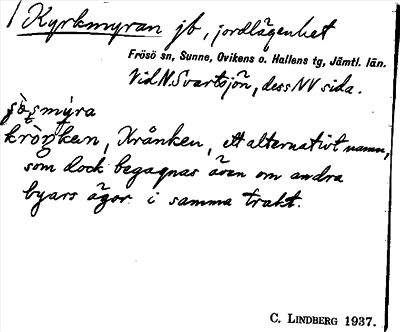 Kyrkmyran jb, jordlägenhet
Frösö sn, Sunne, Ovikens o. Hallens tg, Jämtl. län.
Vid N. Svartsjön, dess NV sida.
krånken, Krånken, ett alternativt namn,
som dock begagnas även om andra
byars ägor i samma trakt.
C. LINDBERG 1937.